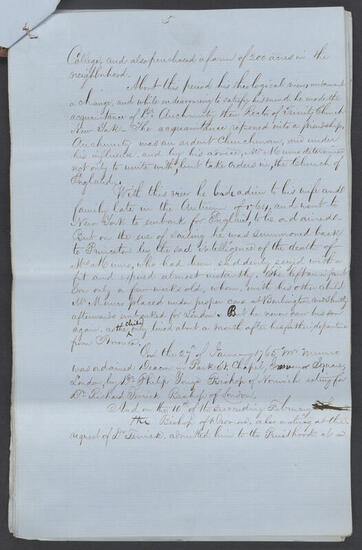 5
College, and also purchased a farm of 200 acres in the
neighborhood.
About this period his theological views underwent
a change, and while endeavoring to satisfy his mind he made the
acquaintance of Dr Auchmuty then Rector of Trinity Church
New York. The acquaintance ripened into a friendship,
Auchmuty was an ardent Churchman, and under
his influence and by his advice, Mr Munro determined
not only to unite with, but take orders in, the Church of
England.
With this view he bade adieu to his wife and
family late in the Autumn of 1764, and went to
New York to embark for England, to be ordained.
But on the eve of sailing he was summoned back
to Princeton by the sad intelligence of the death of
Mrs Munro, who had been suddenly seized with a
fit and expired almost instantly. She left an infant
son only a few weeks old, whom, with his other child
Mr Munro placed under proper care at Burlington and shortly
afterwards embarked for London. But he never saw his son
again, as the child only lived about a month after his father's departure
from America.
On the 27th of January 1765 Mr Munro
was ordained Deacon in Park St. Chapel, Grosvenor Square,
London, by Dr Philip Yonge Bishop of Norwich acting for
Dr Richard Terrick Bishop of London.
And on the 10th of the succeeding February
the Bishop of Norwich, also acting at the
request of Dr Terrick, admitted him to the Priesthood at a